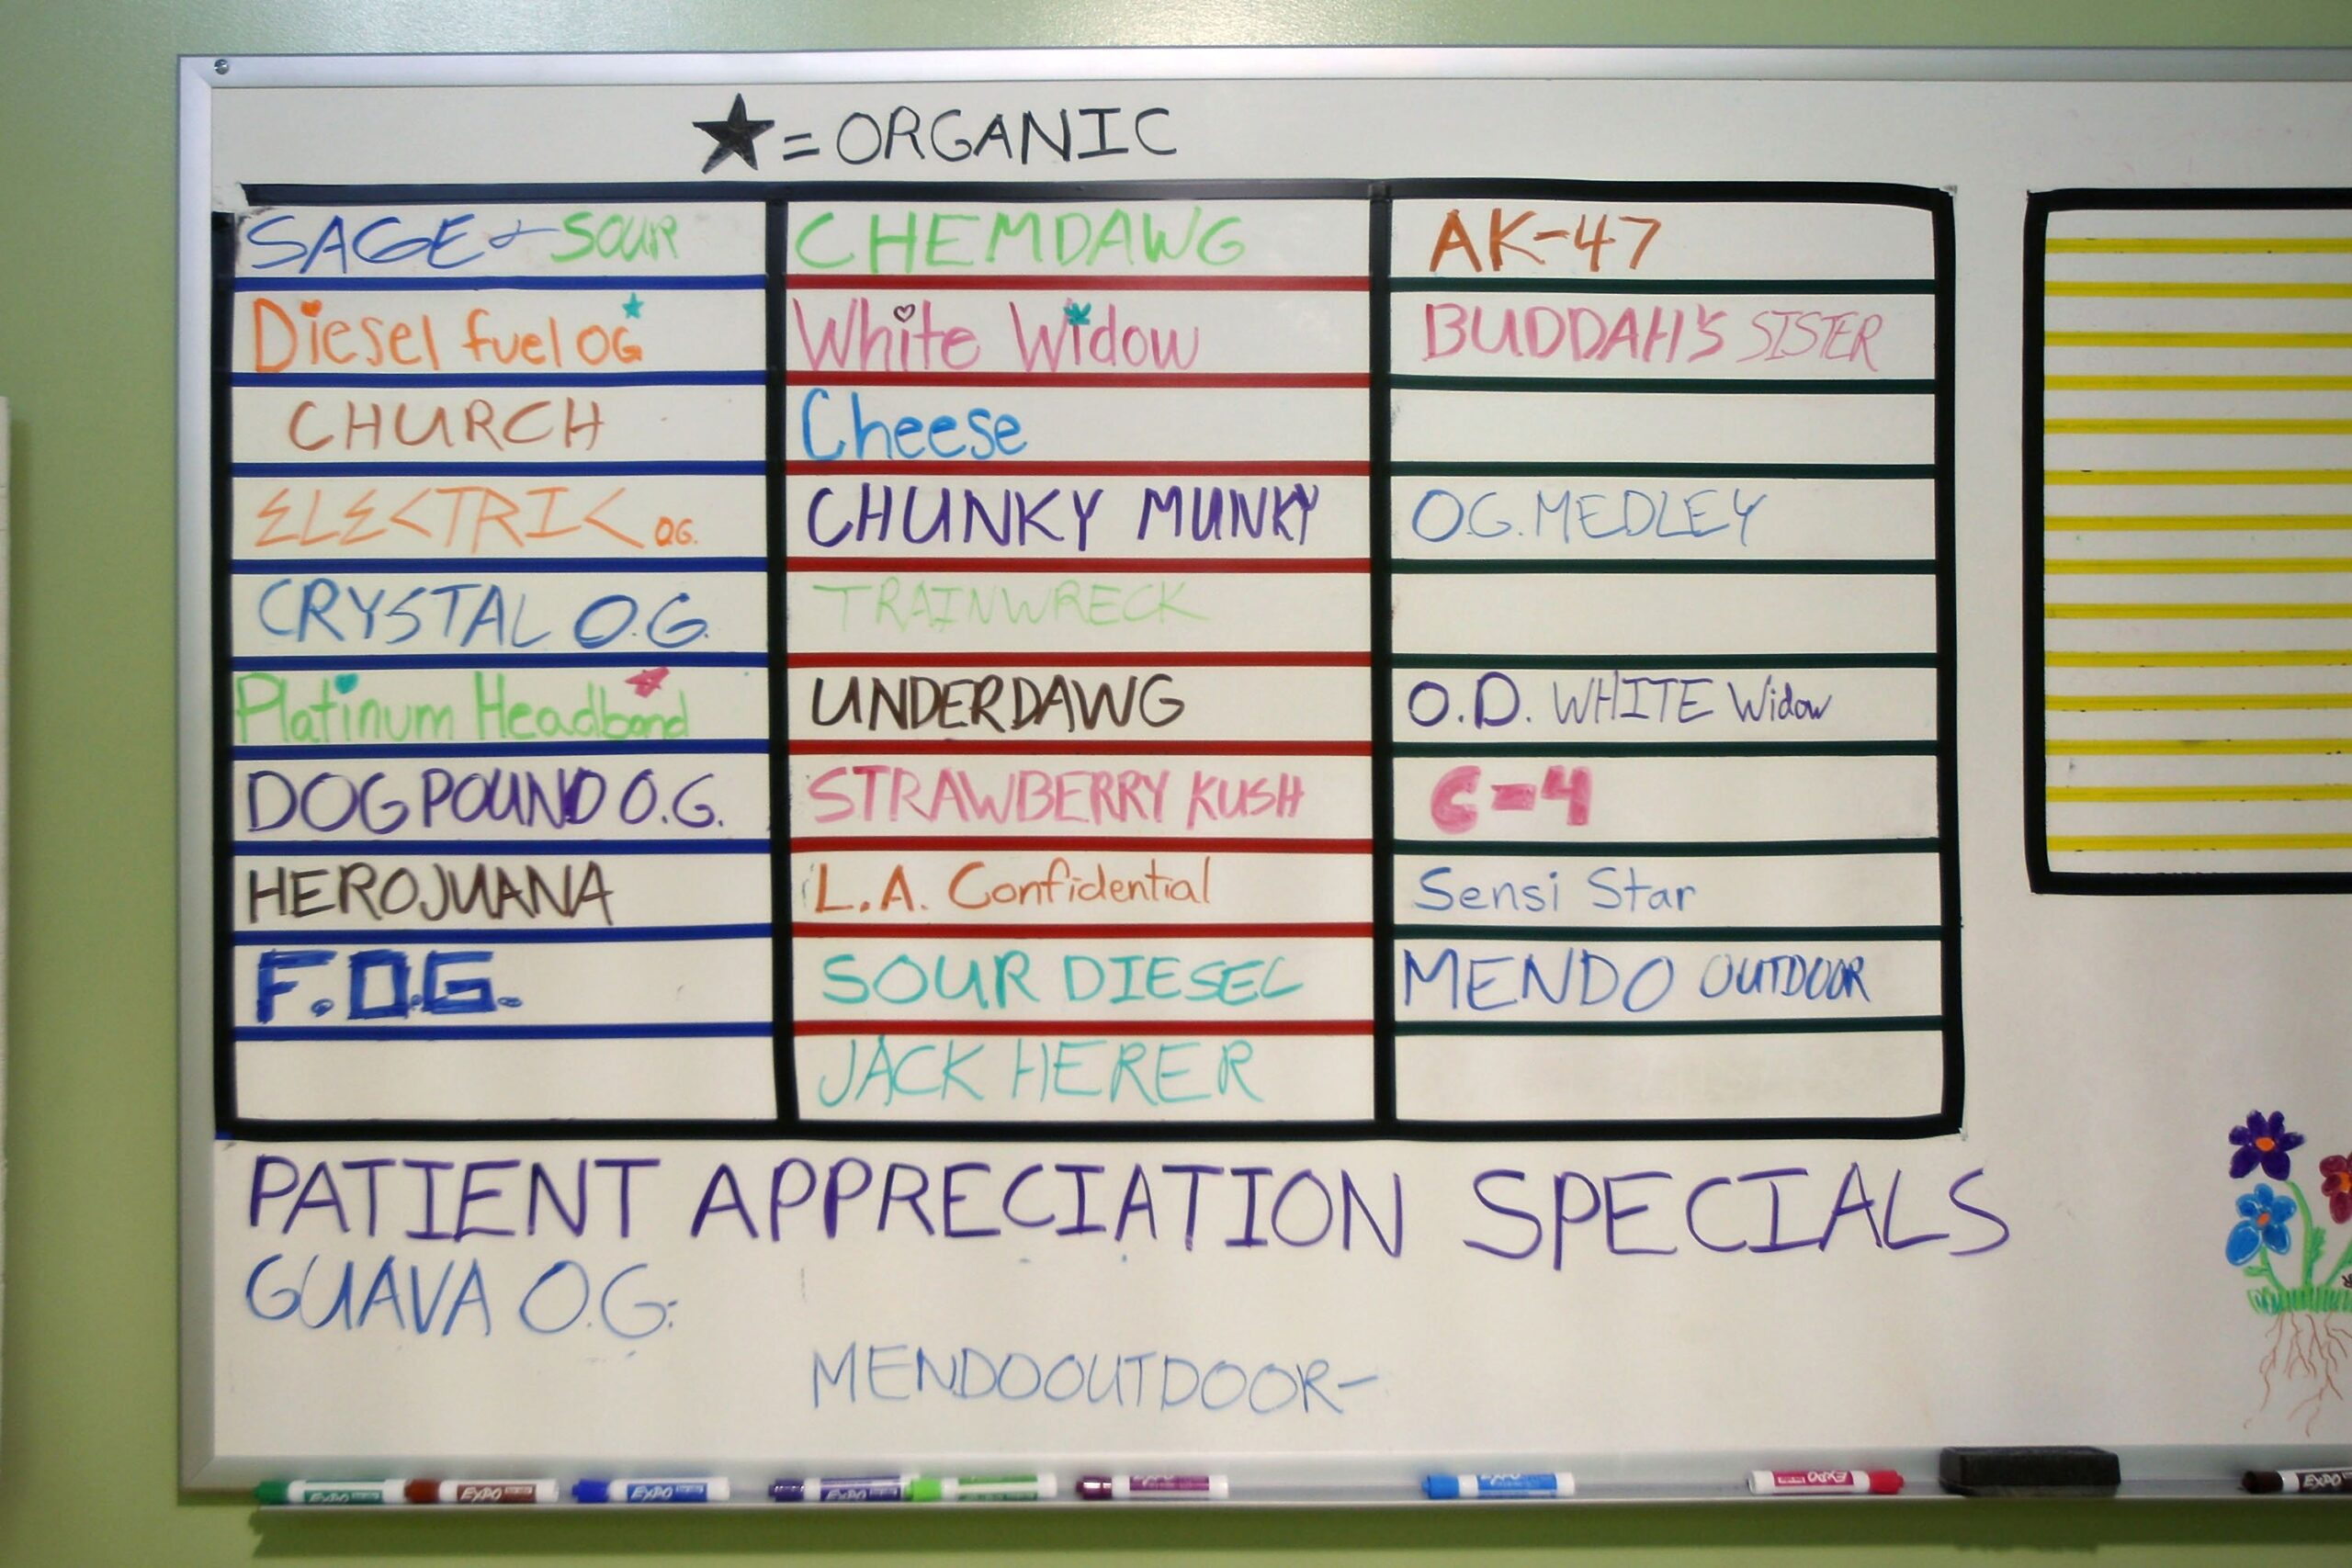 ★ = ORGANIC
SAGE & SOUR
Diesel fuel OG ★
CHURCH
ELECTRIC OG.
CRYSTAL O.G.
Platinum Headband
DOG POUND O.G.
HEROJUANA
F.O.G.
CHEMDAWG
White Widow
Cheese
CHUNKY MUNKY
TRAINWRECK
UNDERDAWG
STRAWBERRY KUSH
L.A. Confidential
SOUR DIESEL
JACK HERER
AK-47
BUDDAH'S SISTER
O.G. MEDLEY
O.D. WHITE Widow
C-4
Sensi Star
MENDO OUTDOOR
PATIENT APPRECIATION SPECIALS
GUAVA O.G:
MENDOOUTDOOR-
EXPO
EXPO
EXPO
EXPO
EXPO
EXPO